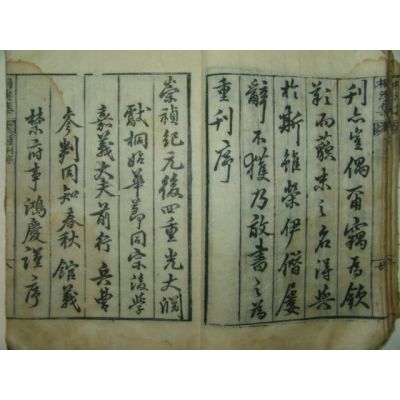 刊亦豈偶爾竊為欽
歎而蕪末之名得與
於斯雖榮伊僭屢
辭不獲乃敢書之為
重刊序
崇禎紀元後四重光大淵
獻桐始華節同宗後學
嘉義大夫前行兵曹
參判同知春秋館義
禁府事鴻慶謹序